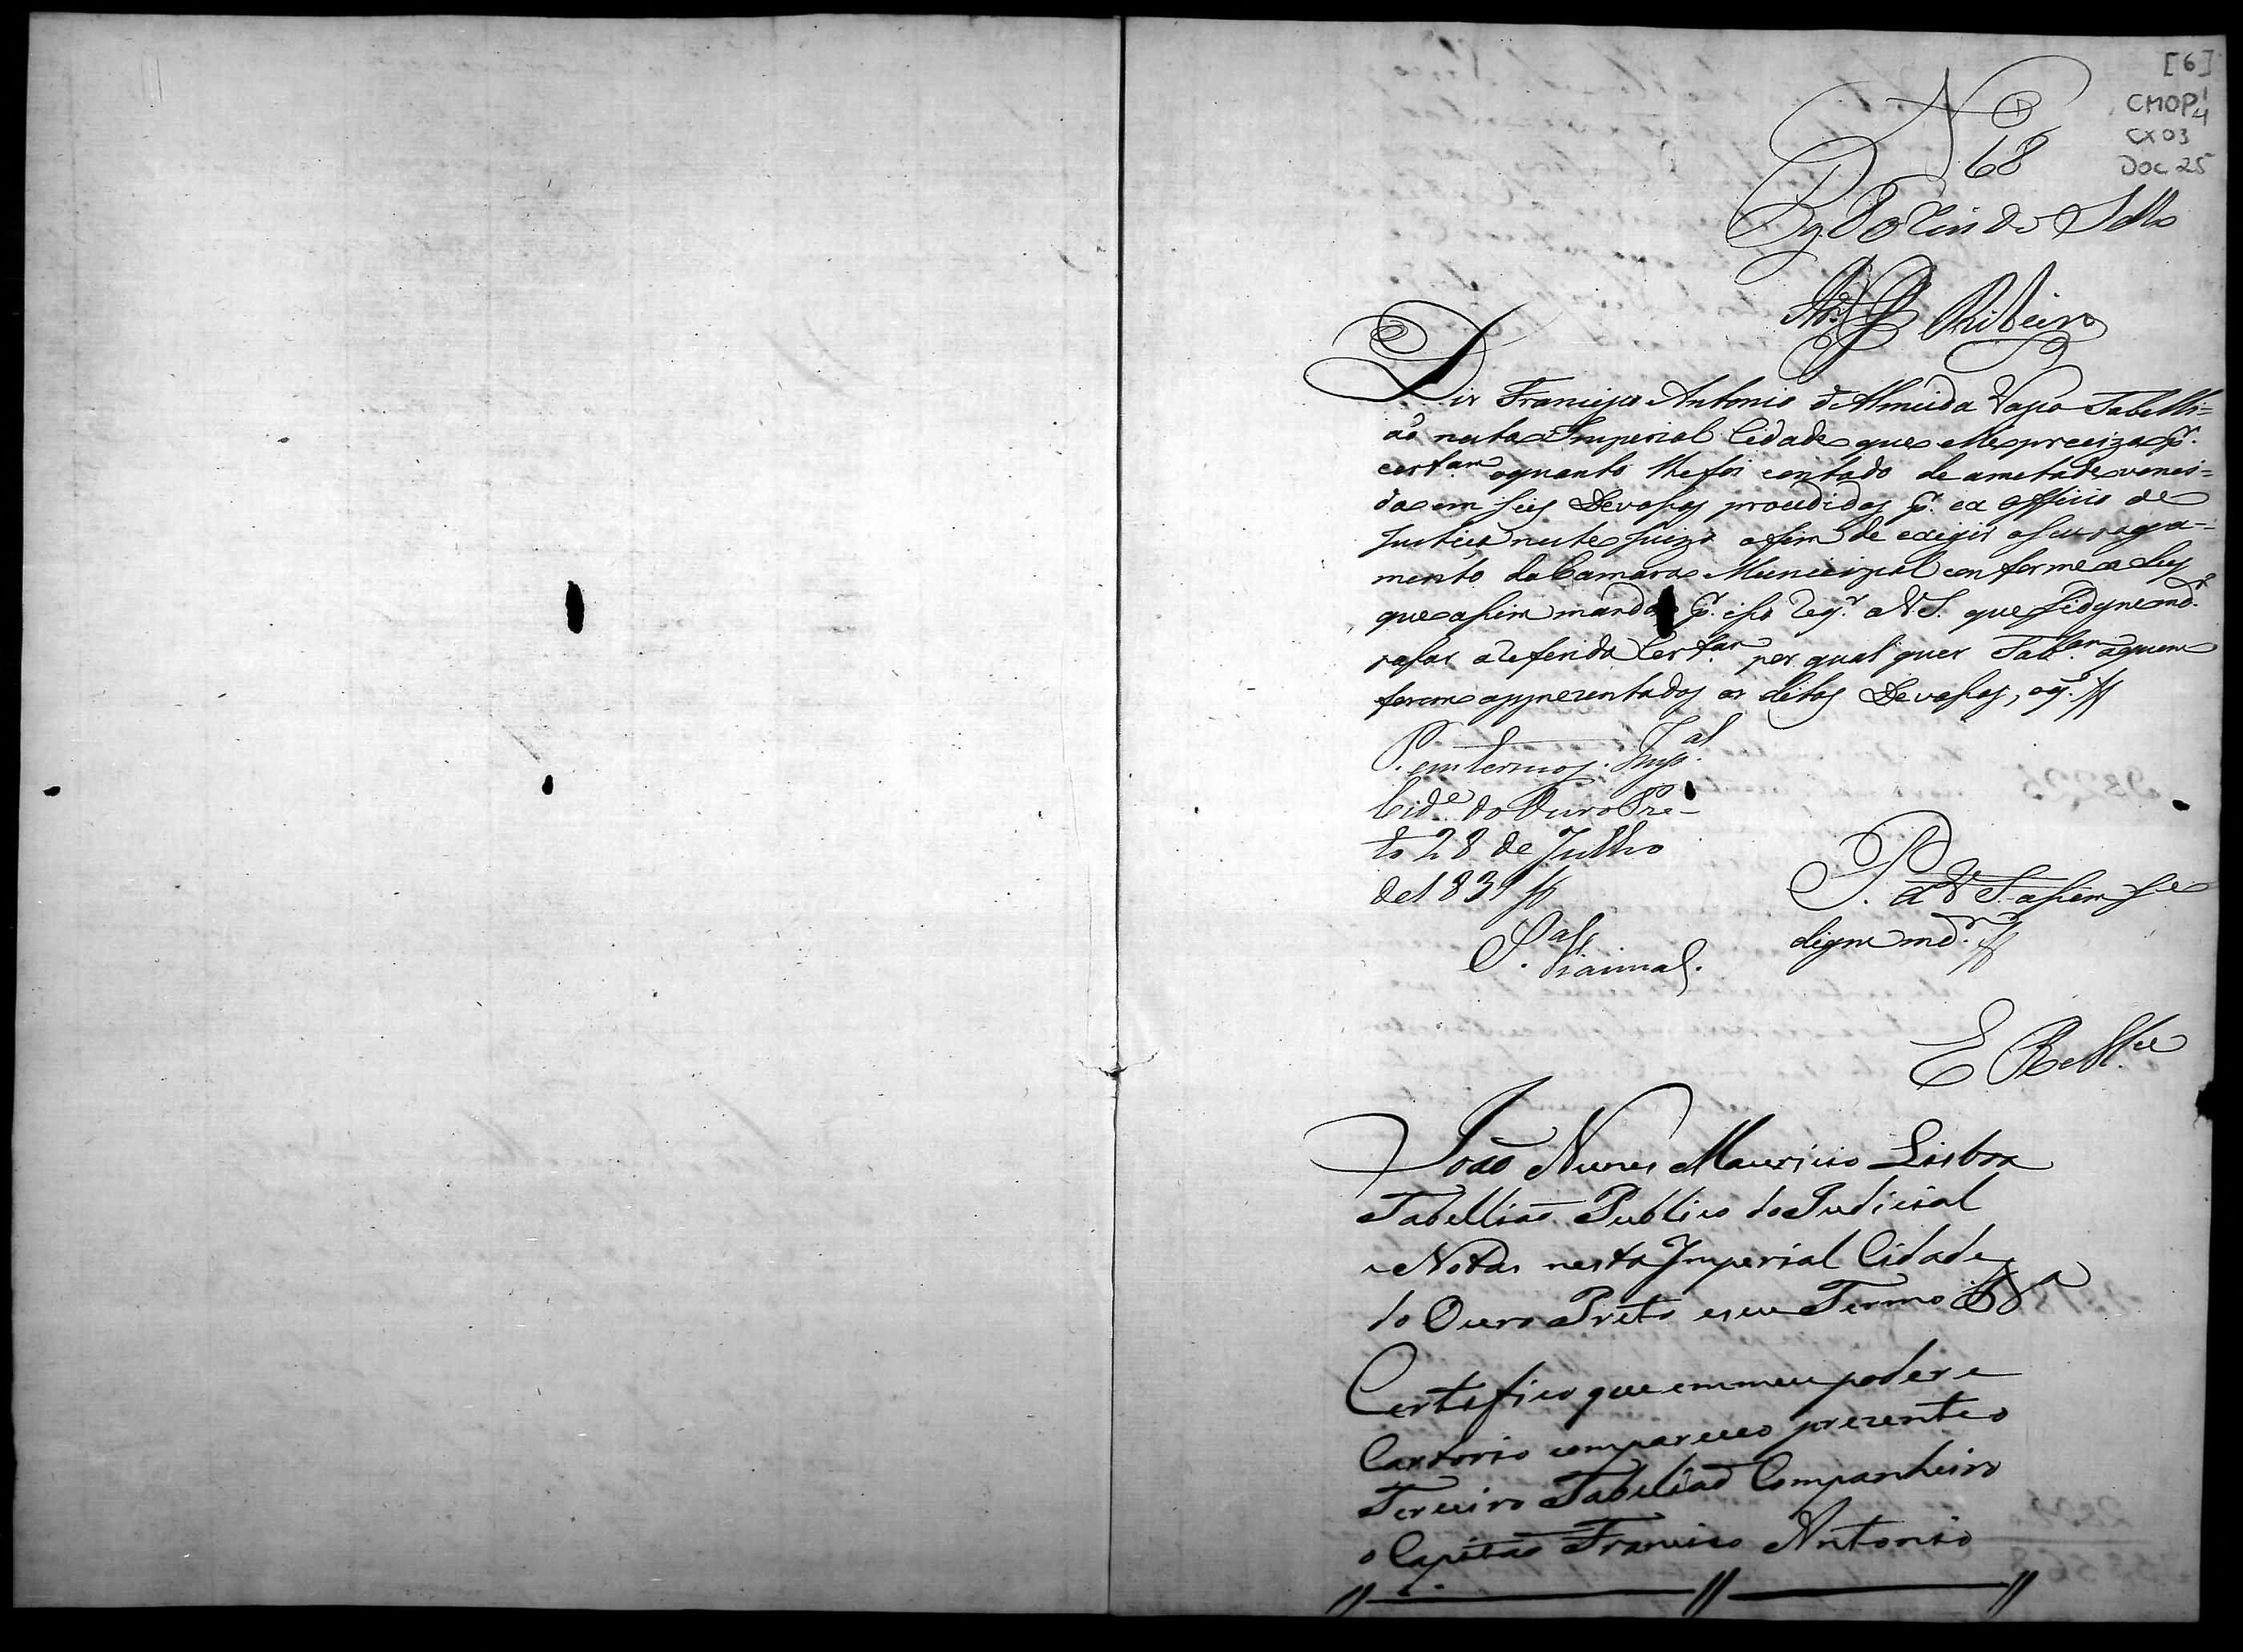 [6]
CMOP 1/4
CX 03
DOC 25
N
68
Pg 80 reis de Sello
Ribeiro
Diz Francisco Antonio d'Almeida Tabelli=
aõ nesta Imperial Cidade que elle preciza p.r
certam oquanto lhe foi contado de ametade venci=
da em seis Devaſsas procedidas p.r ex officio de
Justiça neste Juizo afim de exigir oseu paga=
mento da Camara Municipal conforme a Ley
que aſsim manda p.r iſso req.r a V.S. que se digne md.r
paſsar a referida Certam por qual quer Tab.am aquem
forem apprezentados as ditas Devaſsas, og.
P. em termos. Imp.al
Cid.e do Ouro Pre-
to 28 de Julho
de 1831
P. a V S. aſsim se
digne md.r
E R M.ce
João Nunes Mauricio Lisboa
Tabelliaõ Publico do Judicial
e Notas nesta Imperial Cidade
do Ouro Preto eseu Termo
Certefico que em meu poder e
Cartorio compareceo prezente o
Terceiro Tabeliaõ Companheiro
o Capitaõ Francisco Antonio